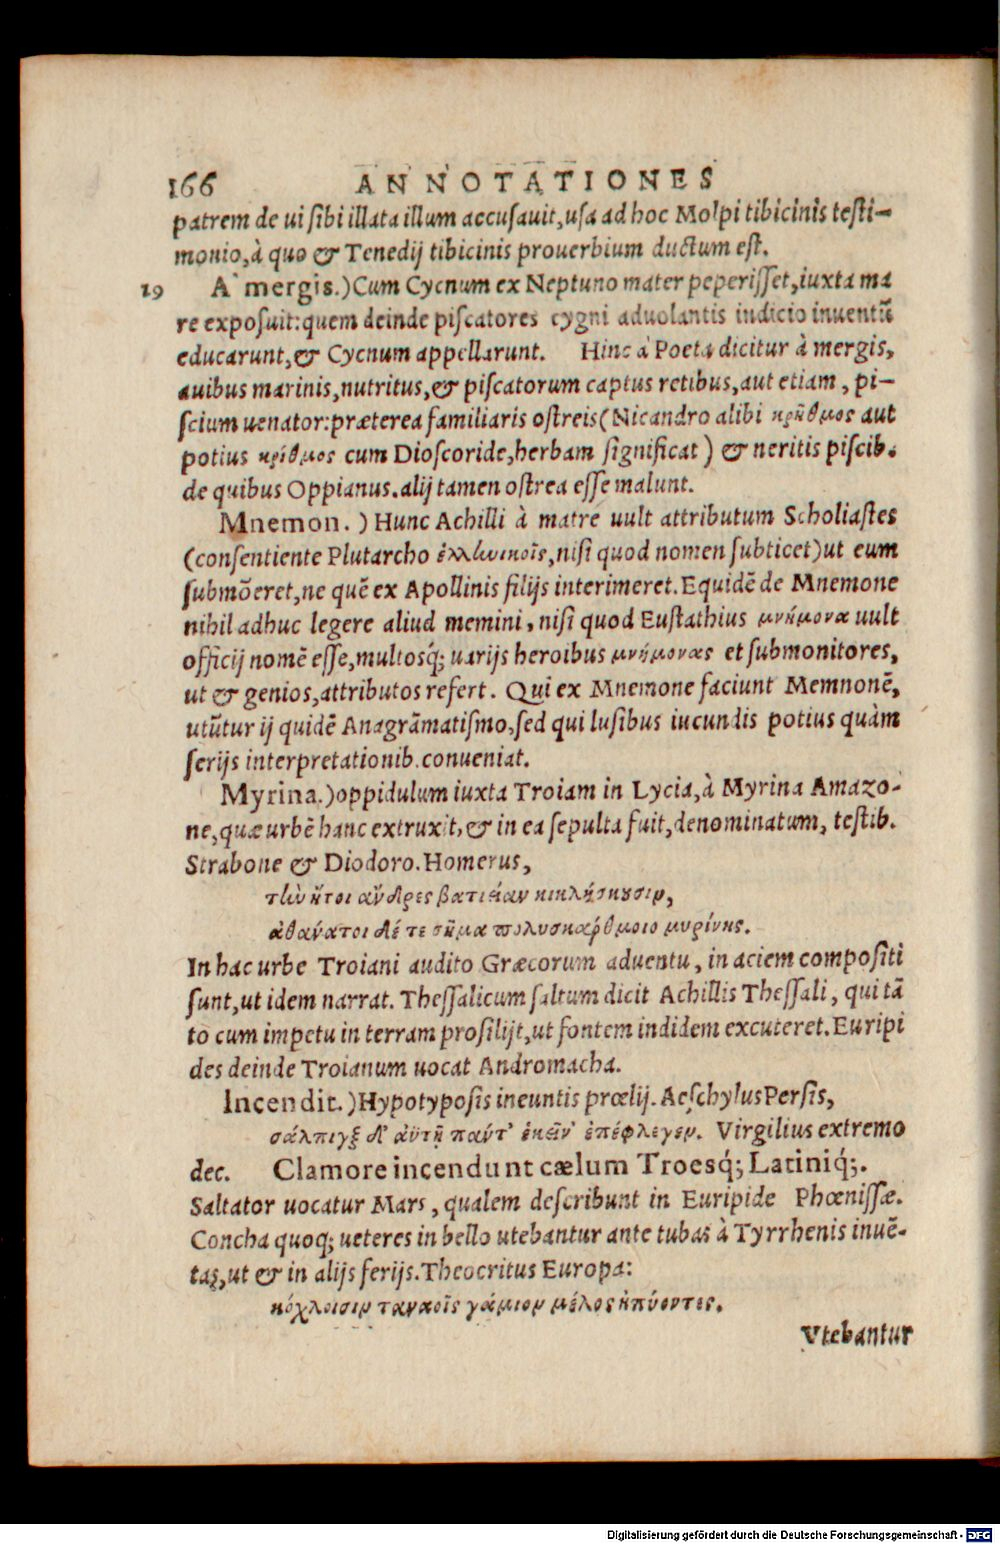 166 ANNOTATIONES
patrem de ui sibi illata illum accusauit, usa ad hoc Molpi tibicinis testi-
monio, à quo & Tenedij tibicinis prouerbium ductum est.
19 A mergis.) Cum Cycnum ex Neptuno mater peperisset, iuxta ma
re exposuit: quem deinde piscatores cygni aduolantis indicio inuentũ
educarunt, & Cycnum appellarunt. Hinc à Poeta dicitur à mergis,
auibus marinis, nutritus, & piscatorum captus retibus, aut etiam, pi-
scium uenator: præterea familiaris ostreis (Nicandro alibi κρῆθμος aut
potius κρίθμος cum Dioscoride, herbam significat) & neritis piscib.
de quibus Oppianus. alij tamen ostrea esse malunt.
Mnemon.) Hunc Achilli à matre uult attributum Scholiastes
(consentiente Plutarcho ἑλλωικοῖς, nisi quod nomen subticet) ut eum
submõeret, ne quẽ ex Apollinis filijs interimeret. Equidẽ de Mnemone
nihil adhuc legere aliud memini, nisi quod Eustathius μνήμονα uult
officij nomẽ esse, multosq́; uarijs heroibus μνήμονας et submonitores,
ut & genios, attributos refert. Qui ex Mnemone faciunt Memnonẽ,
utũtur ij quidẽ Anagrãmatismo, sed qui lusibus iucundis potius quàm
serijs interpretationib. conueniat.
Myrina.) oppidulum iuxta Troiam in Lycia, à Myrina Amazo-
ne, quæ urbẽ hanc extruxit, & in ea sepulta fuit, denominatum, testib.
Strabone & Diodoro. Homerus,
τὼ ἤτοι ἄνδρες βατιείαν κικλήσκουσιν,
ἀθάνατοι δέ τε σῆμα πολυσκάρθμοιο μυρίνης.
In hac urbe Troiani audito Græcorum aduentu, in aciem compositi
sunt, ut idem narrat. Thessalicum saltum dicit Achillis Thessali, qui tã
to cum impetu in terram prosilijt, ut fontem indidem excuteret. Euripi
des deinde Troianum uocat Andromacha.
Incendit.) Hypotyposis ineuntis prœlij. Aeschylus Persis,
σάλπιγξ δ' ἀϋτῇ πάντ' ἐκεῖν' ἐπέφλεγεν. Virgilius extremo
dec. Clamore incendunt cælum Troesq́; Latiniq́;.
Saltator uocatur Mars, qualem describunt in Euripide Phœnissæ.
Concha quoq; ueteres in bello utebantur ante tubas à Tyrrhenis inuẽ-
tas, ut & in alijs ferijs. Theocritus Europa:
κόχλοισιν ταναοῖς γάμιον μέλος ἠπύοντες.
Vtebantur
Digitalisierung gefördert durch die Deutsche Forschungsgemeinschaft - DFG